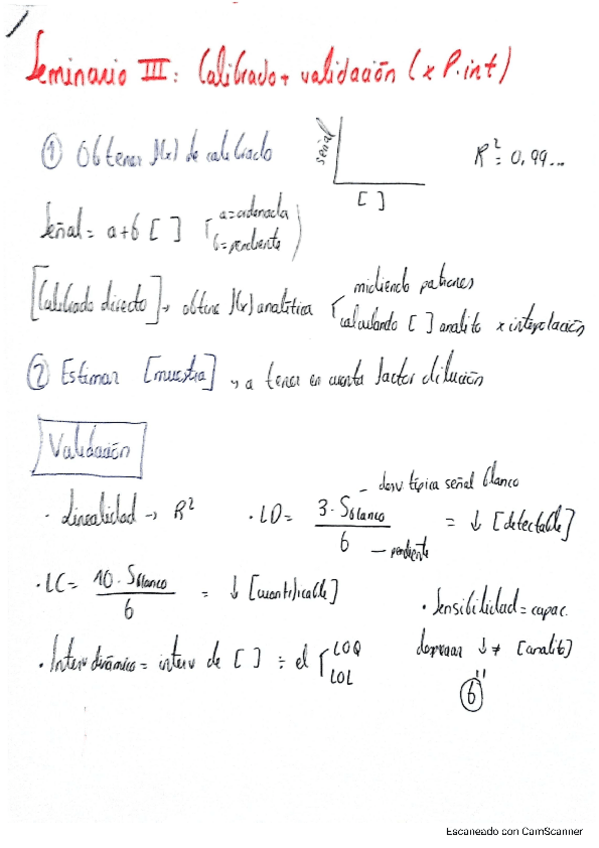 Seminario III: Calibrado + validación (x P.int)
① Obtener f(x) de calibrado
señal
[ ]
R² = 0,99...
Señal = a+b [ ] (a=ordenada
b=pendiente)
[Calibrado directo] → obtene f(x) analítica
midiendo patrones
calculando [ ] analito x interpolación
② Estimar [muestra] → a tener en cuenta factor dilución
Validación
· Linealidad → R²
· LD = 3·Sblanco / b = ↓ [detectable]
desv típica señal blanco
pendiente
· LC = 10·Sblanco / b = ↓ [cuantificable]
· Sensibilidad = capac.
↓ ≠ [analit]
"
b
· Interv dinámico = interv de [ ] ÷ el
LOQ
LOL
Escaneado con CamScanner